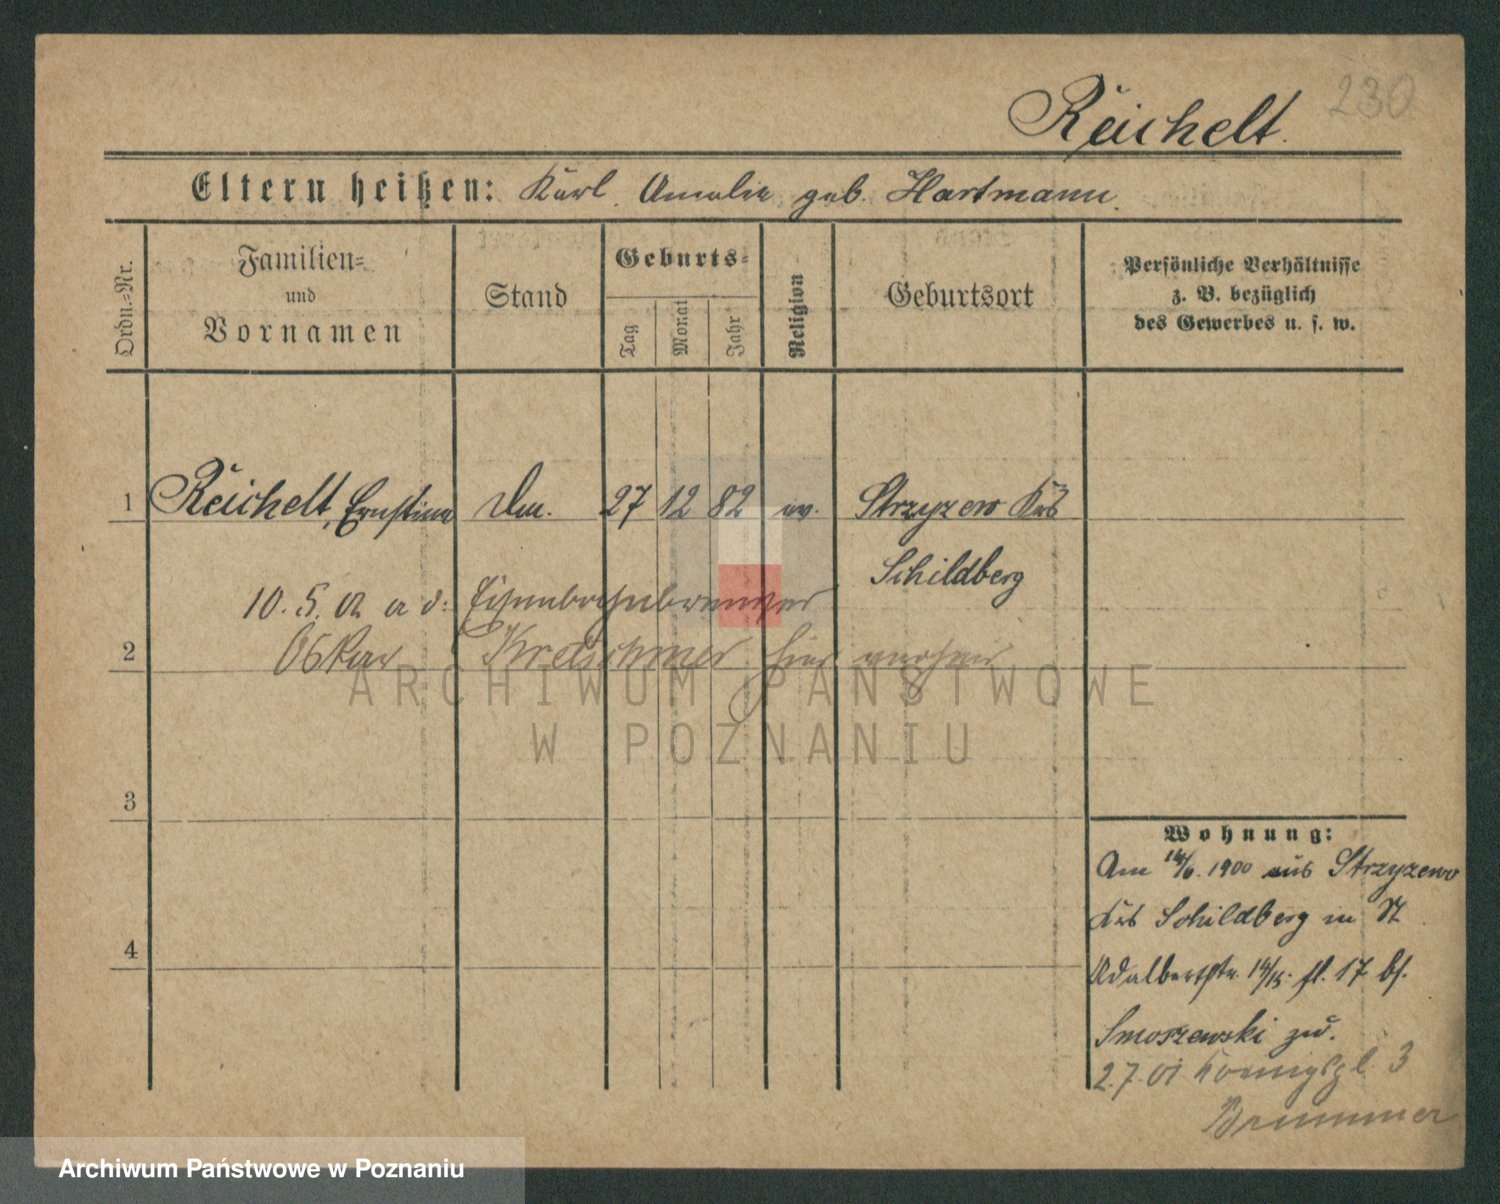 230
Reichelt.
Eltern heißen: Karl. Amalie geb. Hartmann.
Ordn.=Nr.
Familien=
und
Vornamen
Stand
Geburts=
Tag
Monat
Jahr
Religion
Geburtsort
Persönliche Verhältnisse
z. B. bezüglich
des Gewerbes u. s. w.
1 Reichelt, Ernstine 27 12 82 ev. Strzyzew Krs
Schildberg
10. 5. 02 a d: Eisenbahnbremser
2 Oskar Kretschmer hier
3
4
Wohnung:
Am 1900 aus Strzyzewo
Krs Schildberg in St
Adalbertstr. 14/15. fl. 17 bs.
Smoszewski zu.
2.7.01 Koenigspl. 3
Brummer
ARCHIWUM PAŃSTWOWE
W POZNANIU
Archiwum Państwowe w Poznaniu